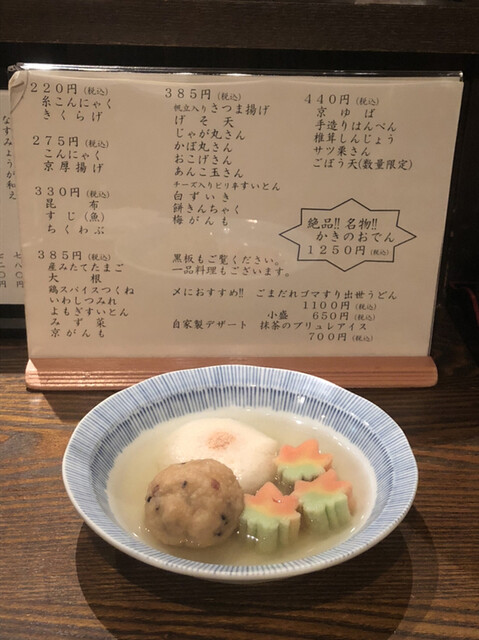 220円(税込)
糸こんにゃく
きくらげ
275円(税込)
こんにゃく
京厚揚げ
330円(税込)
昆布
すじ(魚)
ちくわぶ
385円(税込)
産みたてたまご
大根
鶏スパイスつくね
いわしつみれ
よもぎすいとん
みず菜
京がんも
385円(税込)
帆立入りさつま揚げ
げそ天
じゃが丸さん
かぼ丸さん
おこげきん
あんこ玉さん
チーズ入りピリ辛すいとん
白ずいき
餅きんちゃく
梅がんも
黒板もご覧ください。
一品料理もございます。
440円(税込)
京ゆば
手造りはんぺん
椎茸しんじょう
サツ栗きん
ごぼう天(数量限定)
絶品!!名物!!
かきのおでん
1250円(税込)
〆におすすめ!! ごまだれゴマすり出世うどん
1100円(税込)
小盛 650円(税込)
自家製デザート 抹茶のブリュレアイス
700円(税込)
なすみょうが和え